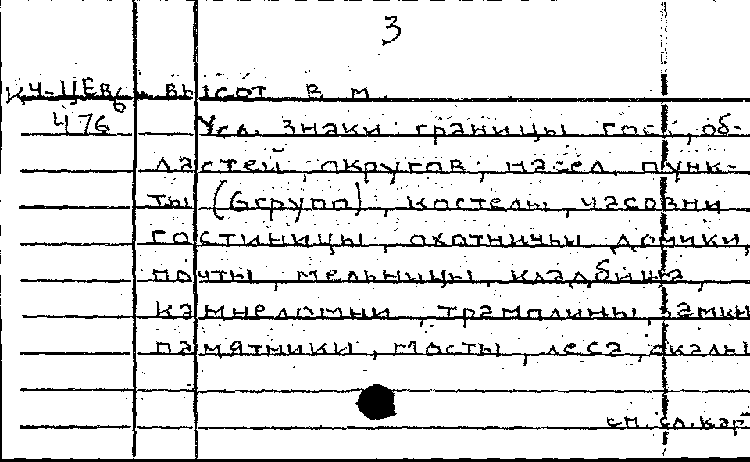 3
КЧ-ЦЕв высот в м.
6
476 Усл. знаки: границы гос., об-
ластей, округов; насел. пунк-
ты (6 групп), костелы, часовни
гостиницы, охотничьи домики,
почты, мельницы, кладбища,
каменоломни, трамплины, замки
памятники, мосты, леса, скалы
см. сл. кар